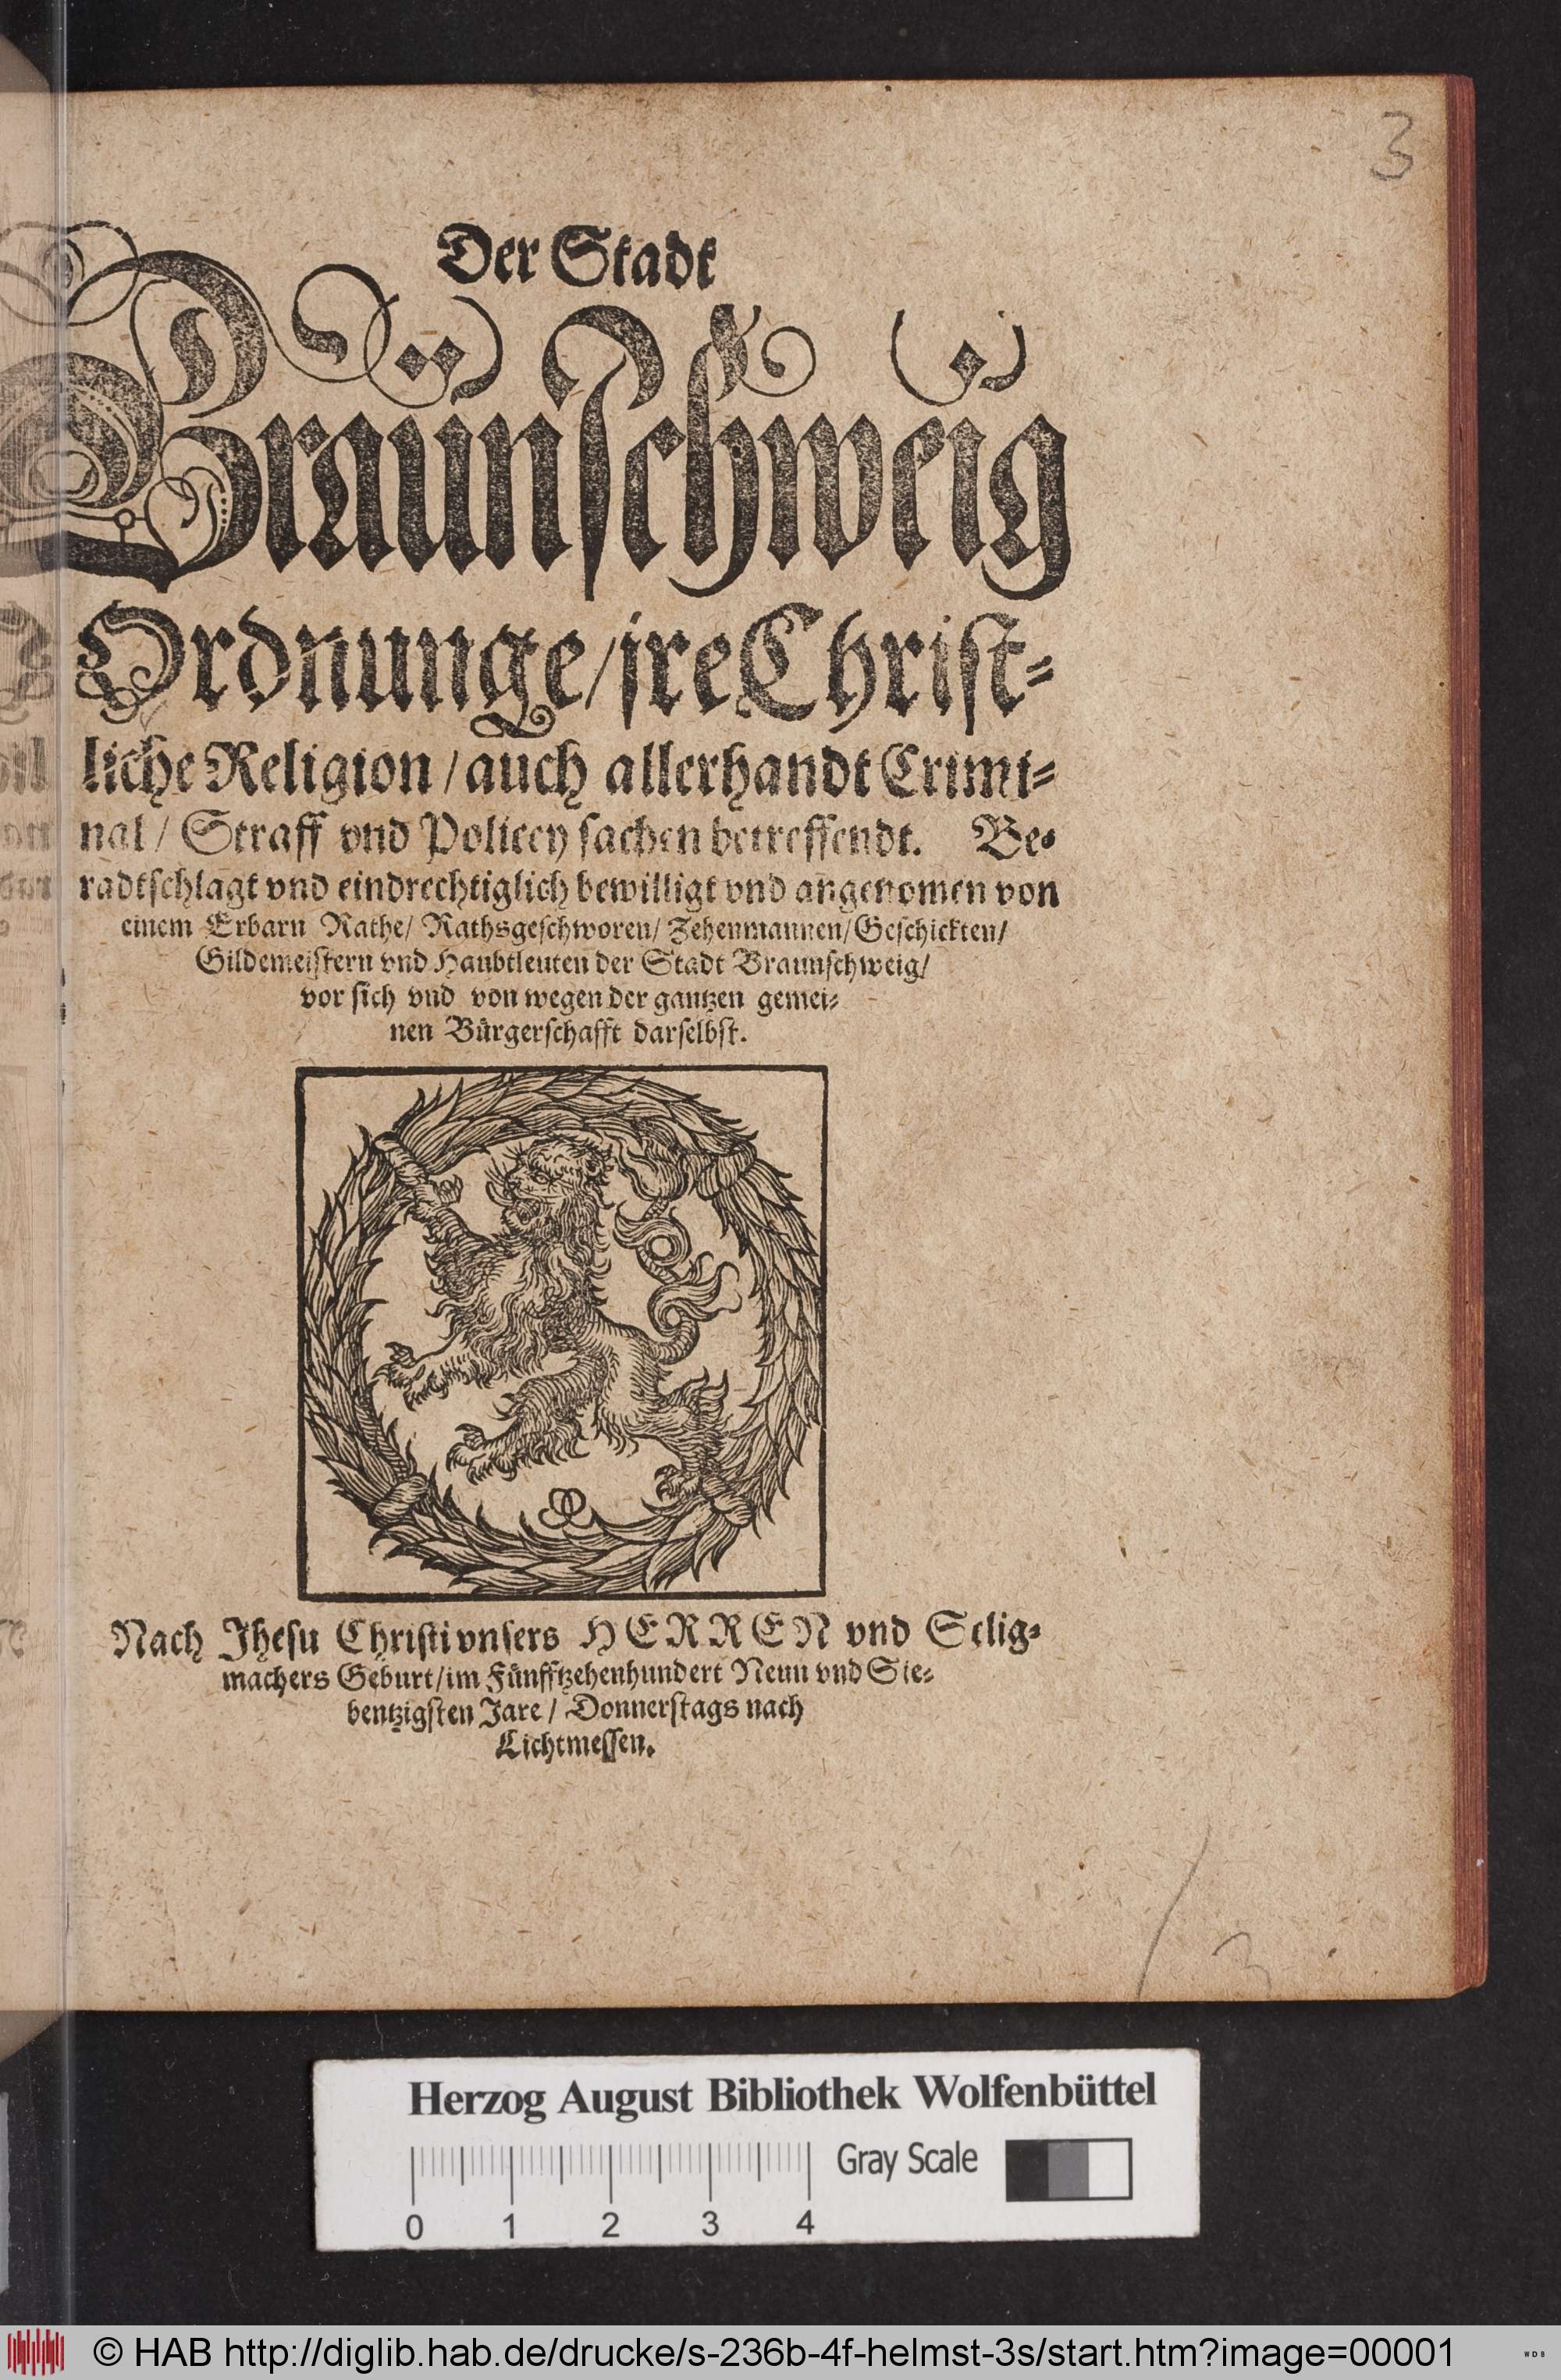 3
Der Stadt
Braunschweig
Ordnunge/ jre Christ-
liche Religion / auch allerhandt Crimi-
nal / Straff vnd Policey sachen betreffendt. Be-
radtschlagt vnd eindrechtiglich bewilligt vnd angenomen von
einem Erbarn Rathe/ Rathsgeschworen/ Zehenmannen/ Geschickten/
Gildemeistern vnd Haubtleuten der Stadt Braunschweig/
vor sich vnd von wegen der gantzen gemei-
nen Bürgerschafft darselbst.
Nach Jhesu Christi vnsers HERREN vnd Selig-
machers Geburt/ im Fünfftzehenhundert Neun vnd Sie-
bentzigsten Jare / Donnerstags nach
Lichtmessen.
Herzog August Bibliothek Wolfenbüttel
Gray Scale
0 1 2 3 4
© HAB http://diglib.hab.de/drucke/s-236b-4f-helmst-3s/start.htm?image=00001
WDB